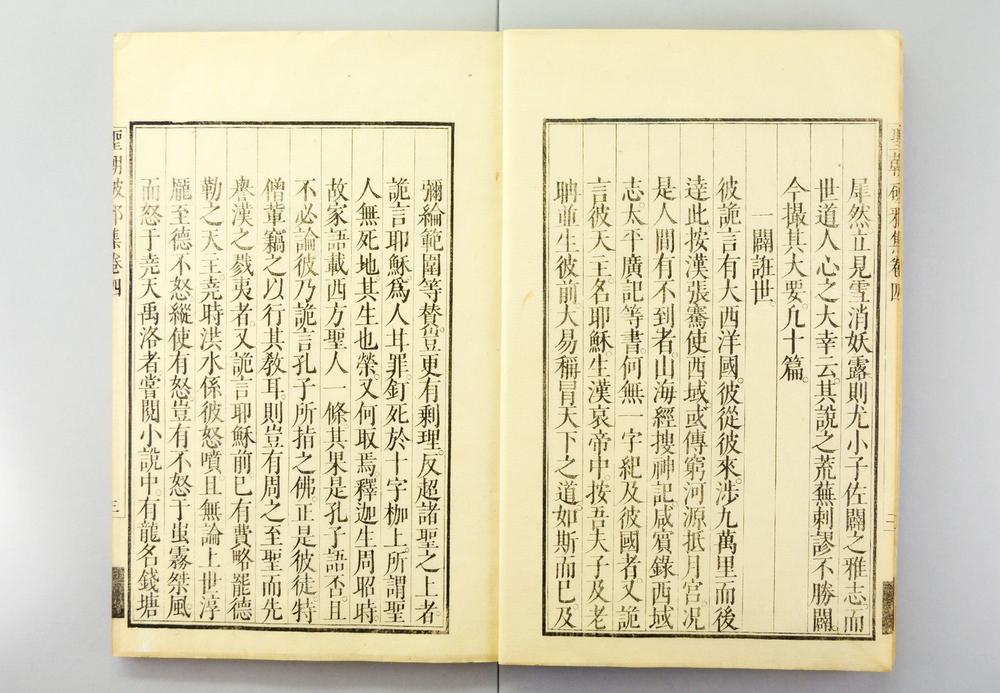 聖朝破邪集卷四
二
犀然立見雪消妖露則尤小子佐闢之雅志而
世道人心之大幸云其說之荒蕪剌謬不勝闢。
今撮其大要凡十篇。
一闢誑世
彼詭言有大西洋國。彼從彼來。涉九萬里而後
達此按漢張騫使西域。或傳窮河源抵月宮。況
是人間有不到者。山海經搜神記咸賓錄西域
志太平廣記等書。何無一字紀及彼國者又詭
言彼天主。名耶穌。生漢哀帝中。按吾夫子及老
聃並生彼前大易稱冒天下之道。如斯而已。及
彌綸範圍等替。豈更有剩理。反超諸聖之上者。
詭言耶穌。為人耳罪。釘死於十字枷上。所謂聖
人無死地其生也榮。又何取焉。釋迦生周昭時
故家語載西方聖人一條其果是孔子語否。且
不必論彼乃詭言孔子所指之佛。正是彼徒特
僧輩竊之以行其教耳。則豈有周之至聖而先
譽漢之戮夷者。又詭言耶穌前已有費略罷德
勒之天主。堯時洪水係彼怒噴。且無論上世淳
龐至德不怒。縱使有怒豈有不怒于蚩霧桀風
而怒于堯天禹洛者嘗閱小說中。有龍名錢塘
聖朝破邪集卷四
三